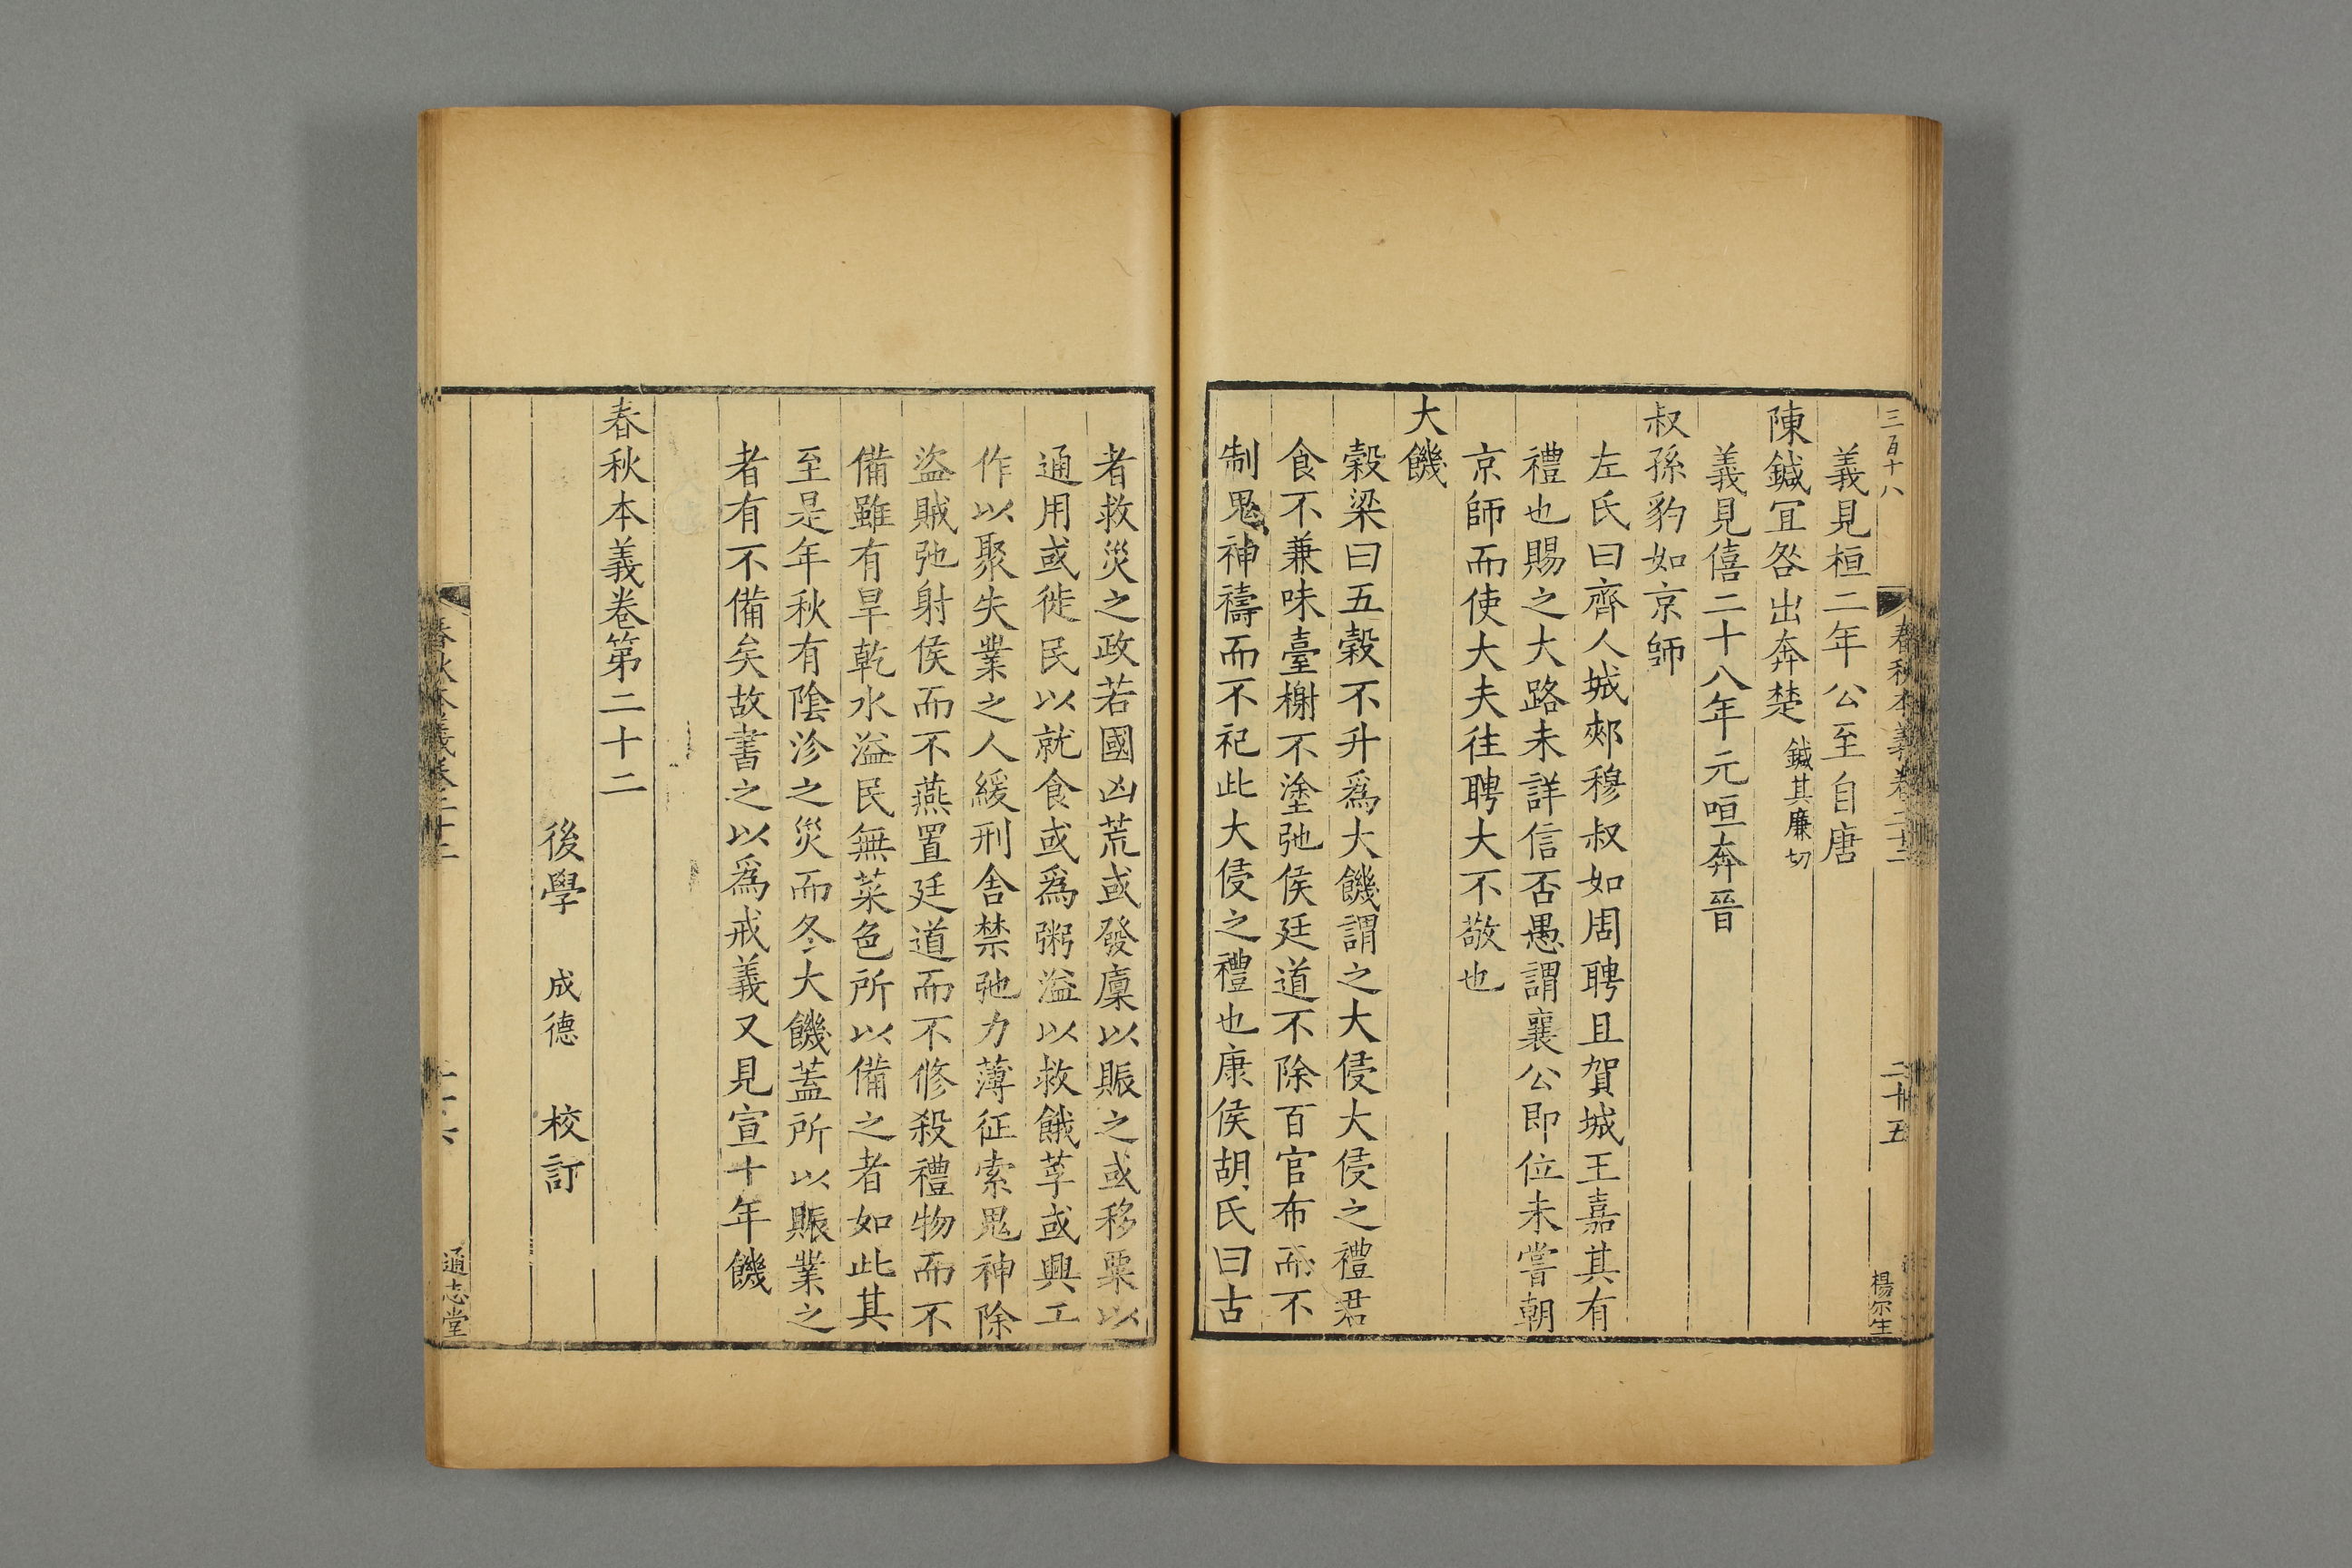 三百十八
春秋本義卷二十二
二十五
楊尔生
義見桓二年公至自唐
陳鍼冝咎出奔楚鍼其廉切
義見僖二十八年元咺奔晉
叔孫豹如京師
左氏曰齊人城郟穆叔如周聘且賀城王嘉其有
禮也賜之大路未詳信否愚謂襄公即位未嘗朝
京師而使大夫往聘大不敬也
大饑
穀梁曰五穀不升爲大饑謂之大侵大侵之禮君
食不兼味臺榭不塗弛侯廷道不除百官布而不
制鬼神禱而不祀此大侵之禮也康侯胡氏曰古
者救災之政若國凶荒或發廩以賑之或移粟以
通用或徙民以就食或爲粥溢以救餓莩或興工
作以聚失業之人緩刑舍禁弛力薄征索鬼神除
盜賊弛射侯而不燕置廷道而不修殺禮物而不
備雖有旱乾水溢民無菜色所以備之者如此其
至是年秋有陰沴之災而冬大饑蓋所以賑業之
者有不備矣故書之以爲戒義又見宣十年饑
春秋本義卷第二十二
後學 成德 校訂
春秋本義卷二十二
二十六
通志堂